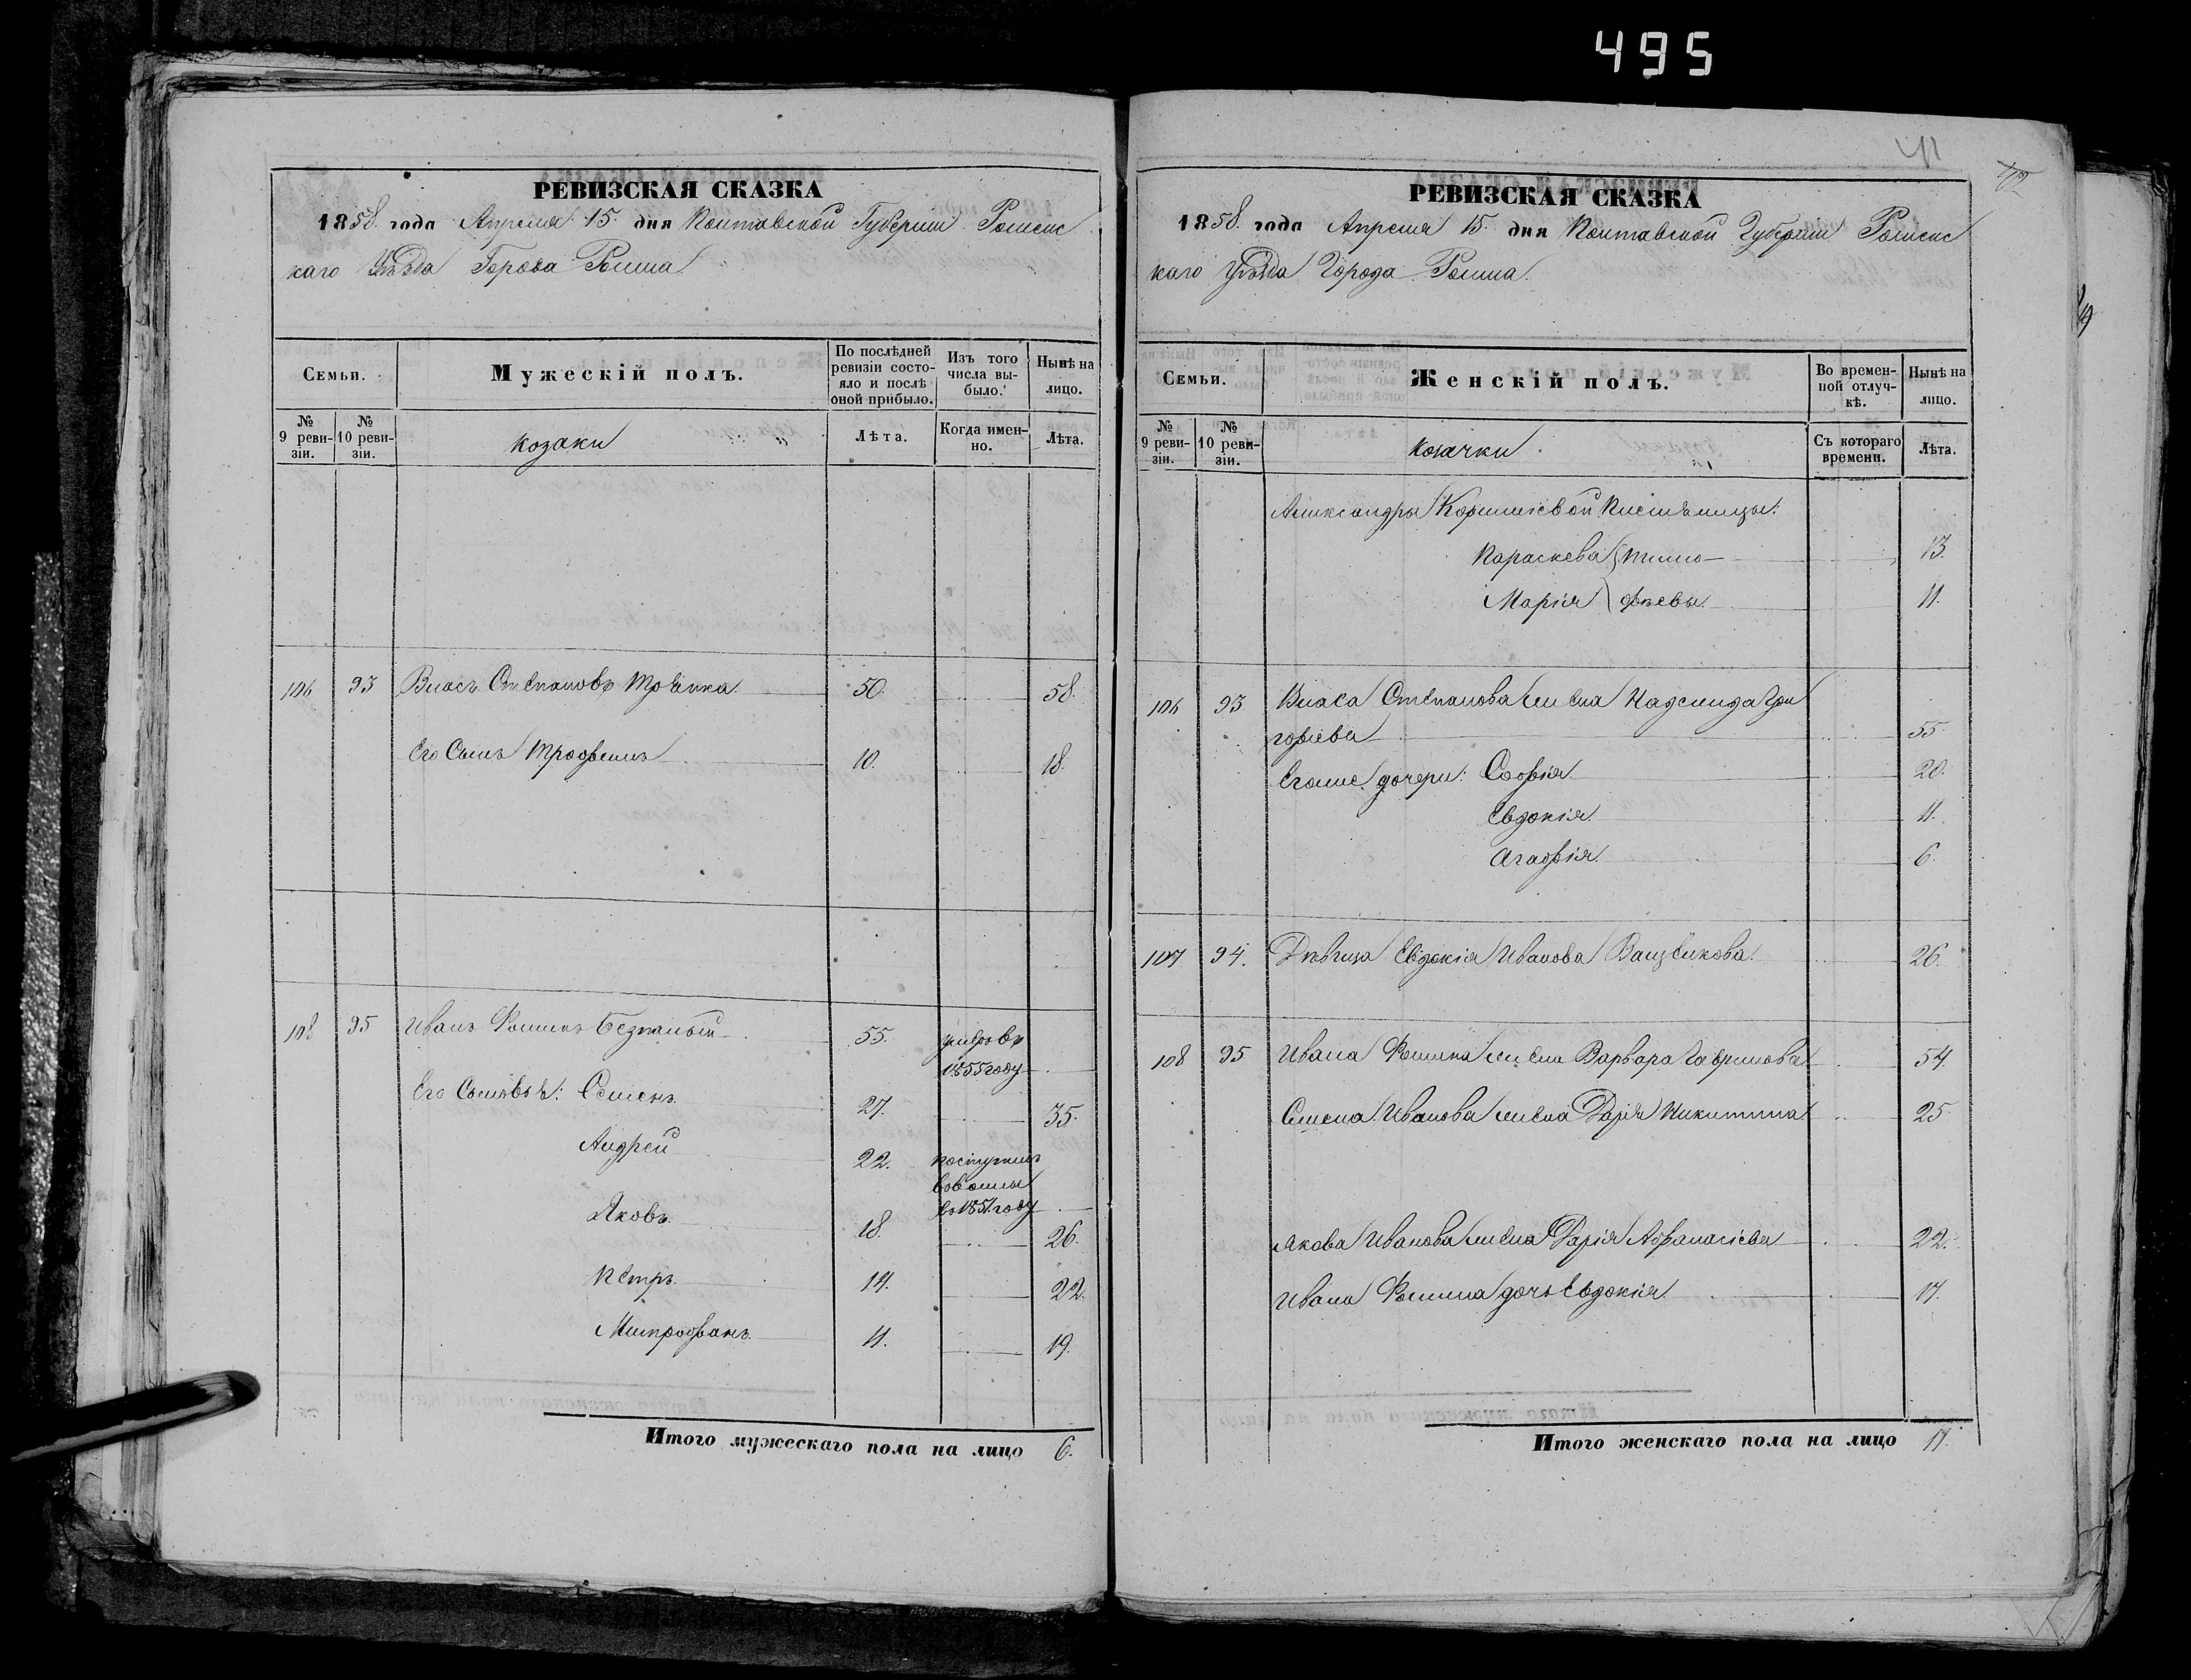 495
41
РЕВИЗСКАЯ СКАЗКА
1858. года Апреля 15 дня Полтавской Губерніи Роменс
каго Уѣзда Города Ромна.
Семьи.
Мужескій полъ.
По послѣдней ревизіи состояло и послѣ оной прибыло.
Изъ того числа выбыло.
Нынѣ на лицо.
№ 9 ревизіи.
№ 10 ревизіи.
козаки
Лѣта.
Когда именно.
Лѣта.
106 93 Власъ Степановъ 50. 58.
Его Сынъ Трофимъ 10. 18.
108 95 Иванъ Фоминъ Безпалый 55. умеръ въ
1855 году
Его Сыновья: Семенъ 27. 35.
Андрей 22. поступилъ
въ 1851 году
Яковъ 18. 26.
Петръ 14. 22.
Митрофанъ 11. 19.
Итого мужескаго пола на лицо 6.
РЕВИЗСКАЯ СКАЗКА
1858. года Апреля 15. дня Полтавской Губерніи Роменс
каго Уѣзда Города Ромна.
Семьи.
Женскій полъ.
Во временной отлучкѣ.
Нынѣ на лицо.
№ 9 ревизіи.
№ 10 ревизіи.
козачки
Съ котораго времени.
Лѣта.
Александры Корнилiевой
Параскева Тимо- 13.
Марія фѣевы 11.
106 93 Власа Степанова жена Надежда Гри
горіева 55
Егоже дочери: Софія 20.
Евдокія 11.
Агафія 6.
107 94. Дѣвица Евдокія Иванова 26.
108 95 Ивана Фомина жена Варвара Гаврилова 54.
Семена Иванова жена Дарія Никитина 25
Якова Иванова жена Дарія Афанасіева 22.
Ивана Фомина дочь Евдокія 17.
Итого женскаго пола на лицо 11.